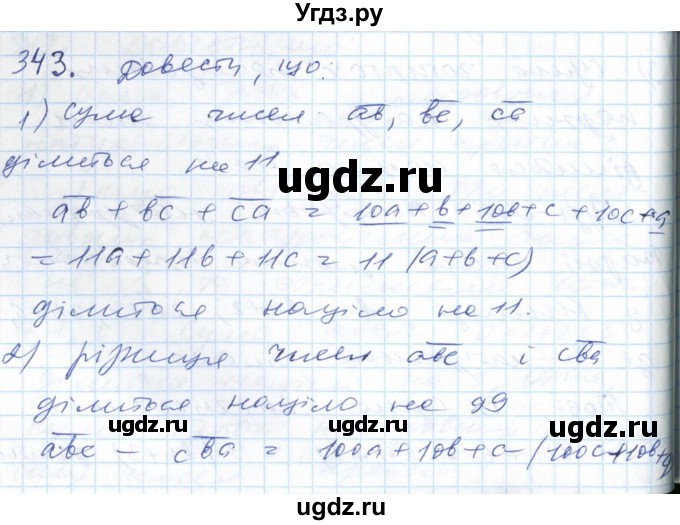 Угдз.ру
343. Довести, що:
1) сума чисел ab, bc, ca
ділиться на 11
ugdz.ru
ab + bc + ca = 10a + b + 10b + c + 10c + a
= 11a + 11b + 11c = 11 (a+b+c)
ugdz.ru
ugdz.ru
ділиться націло на 11.
2) різниця чисел abc і cba
ділиться націло на 99
ugdz.ru
ugdz.ru
abc - cba = 100a + 10b + c - (100c + 10b + a
ugdz.ru
ugdz.ru